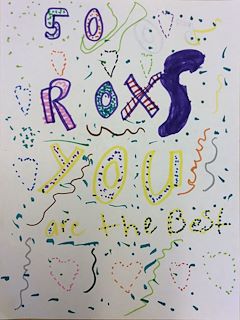 50
ROXS
YOU
are the Best